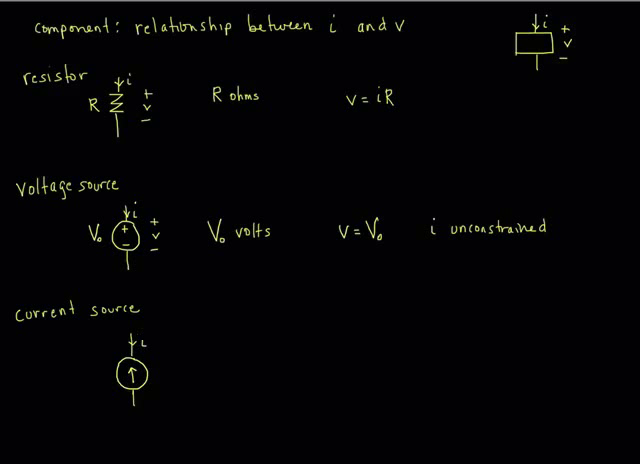 component: relationship between i and v
i
+
v
−
resistor
i
R
+
v
−
R ohms
v = iR
Voltage source
i
V₀
+
−
+
v
−
V₀ volts
v = V₀
i unconstrained
current source
i